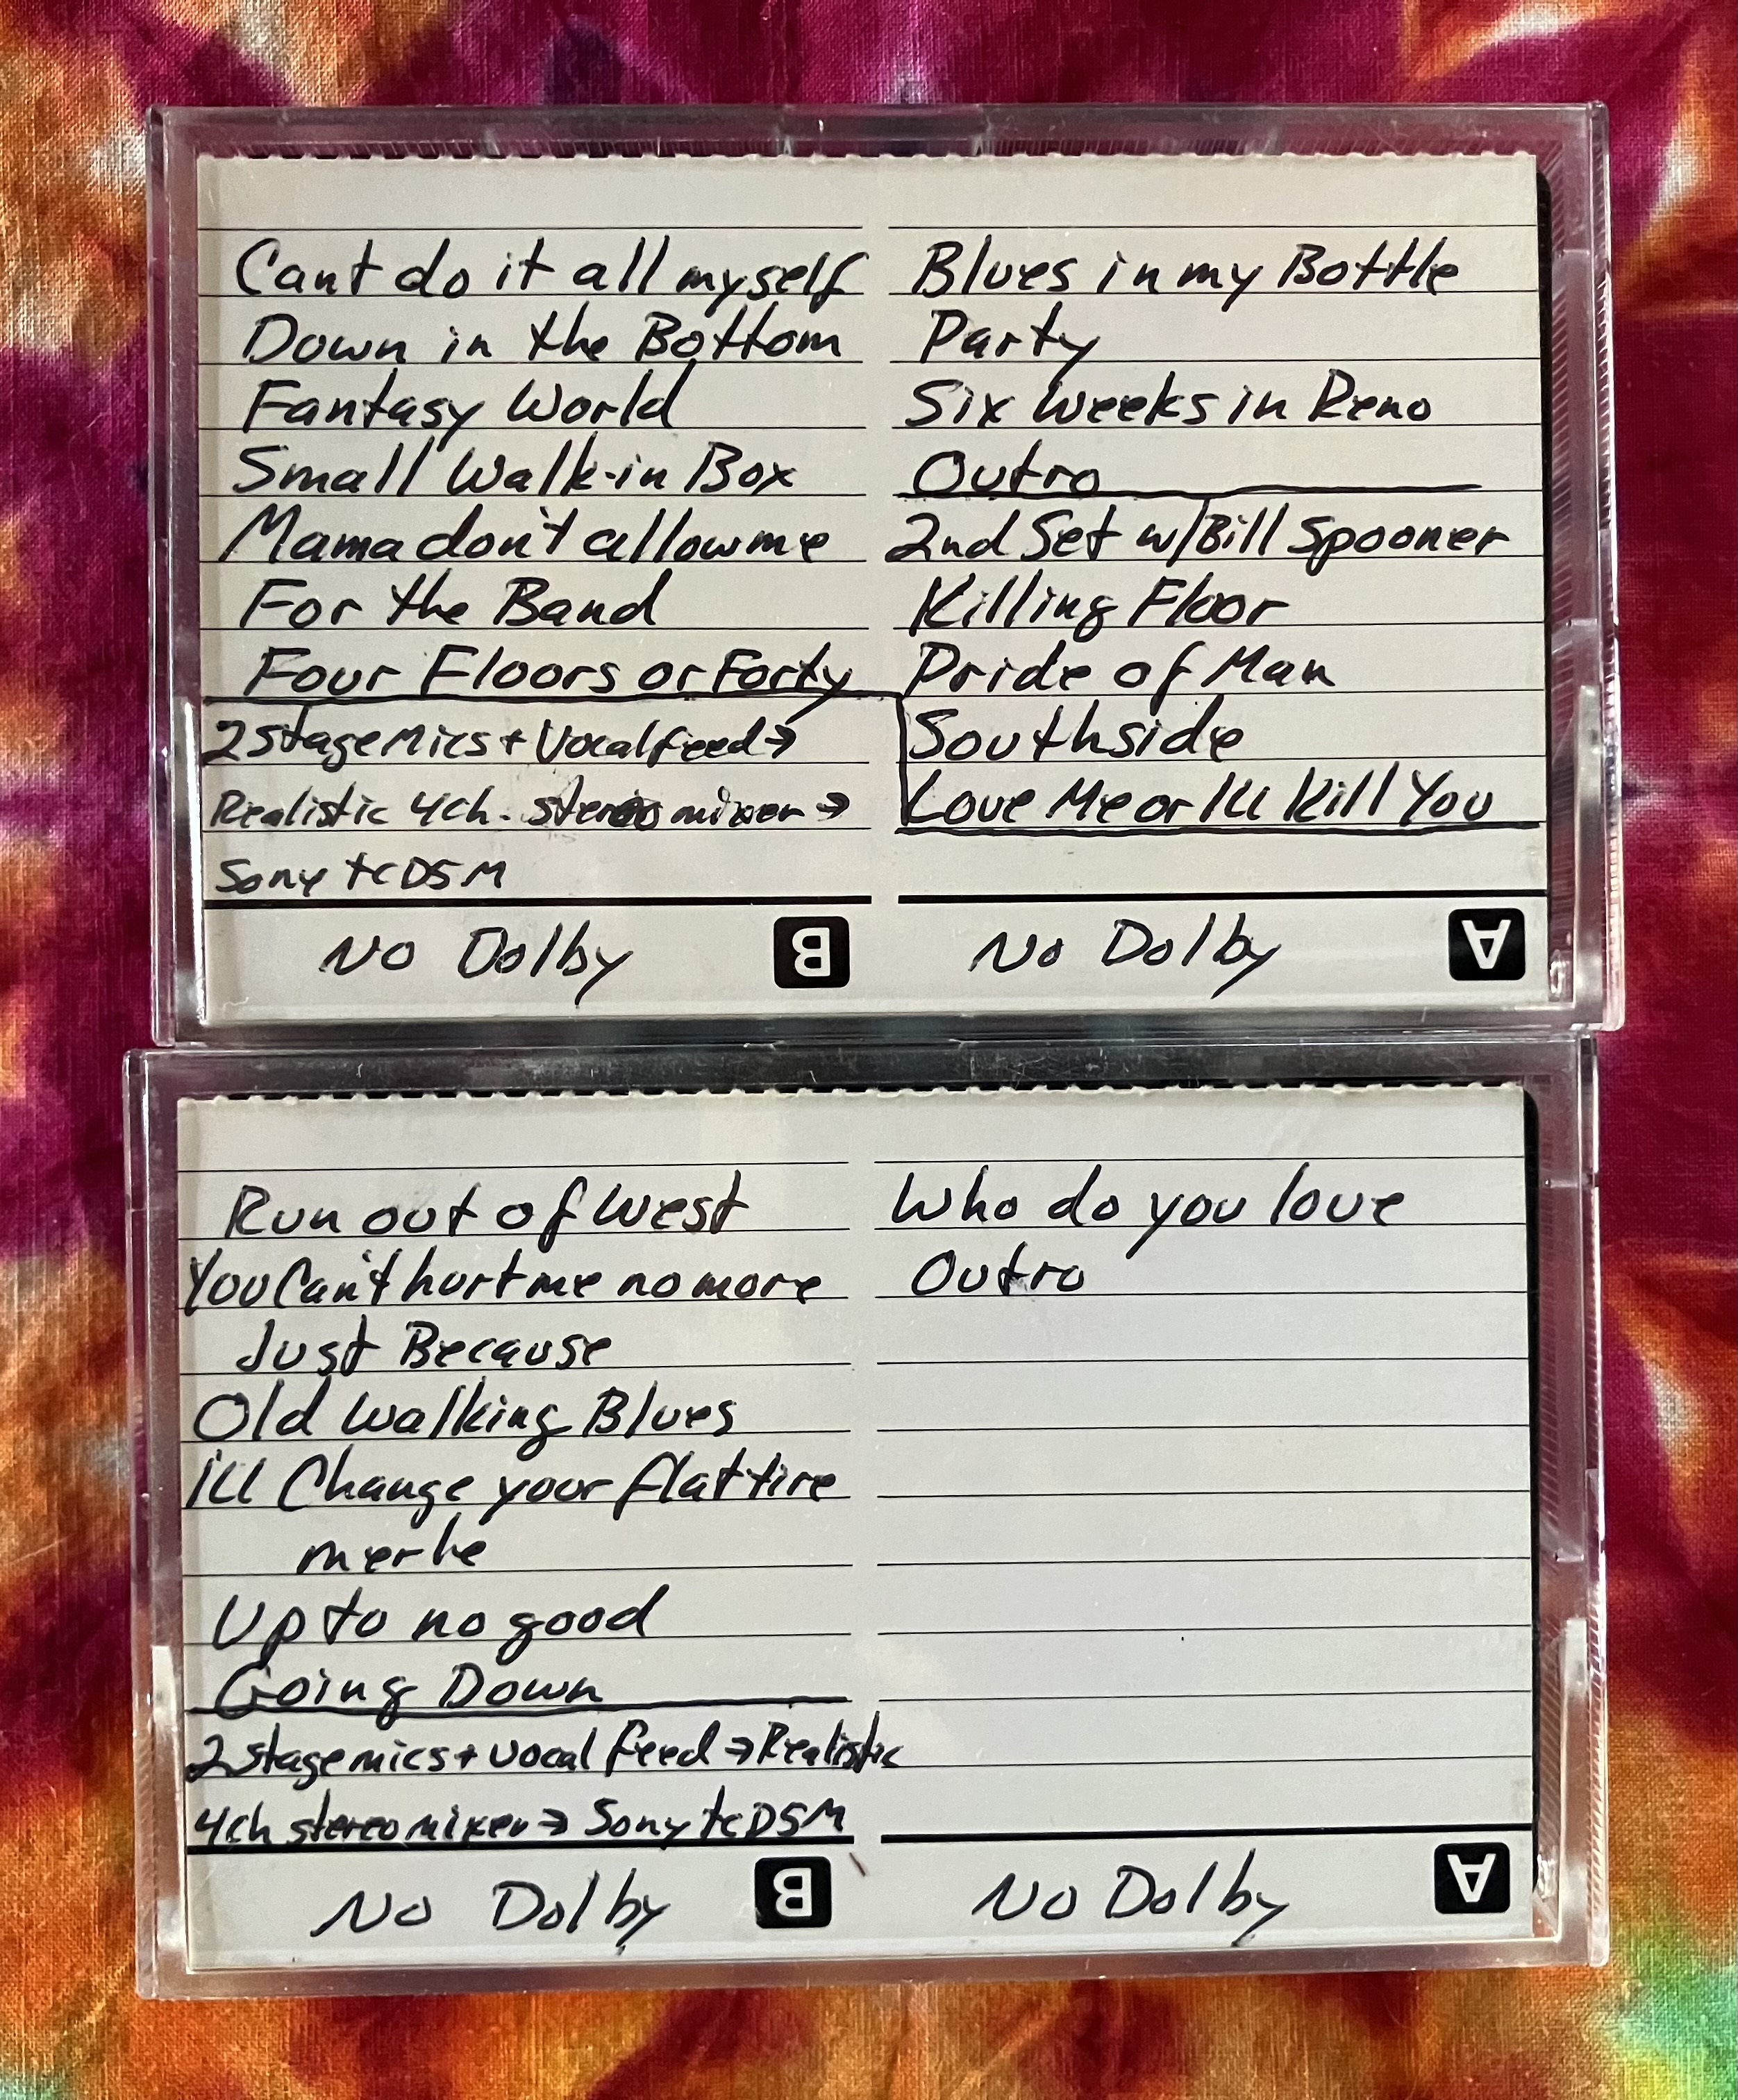 Cant do it all myself
Down in the Bottom
Fantasy World
Small Walk-in Box
Mama don't allow me
For the Band
Four Floors or Forty
2 stage Mics + Vocal feed →
Realistic 4ch. stereo mixer →
Sony tcD5M
No Dolby B
Blues in my Bottle
Party
Six Weeks in Reno
Outro
2nd Set w/Bill Spooner
Killing Floor
Pride of Man
Southside
Love Me or Ill Kill You
No Dolby A
Run out of West
You Can't hurt me no more
Just Because
Old Walking Blues
Ill Change your flat tire
merle
Up to no good
Going Down
2 stage mics + vocal feed → Realistic
4ch stereo mixer → Sony tcD5M
No Dolby B
Who do you love
Outro
No Dolby A